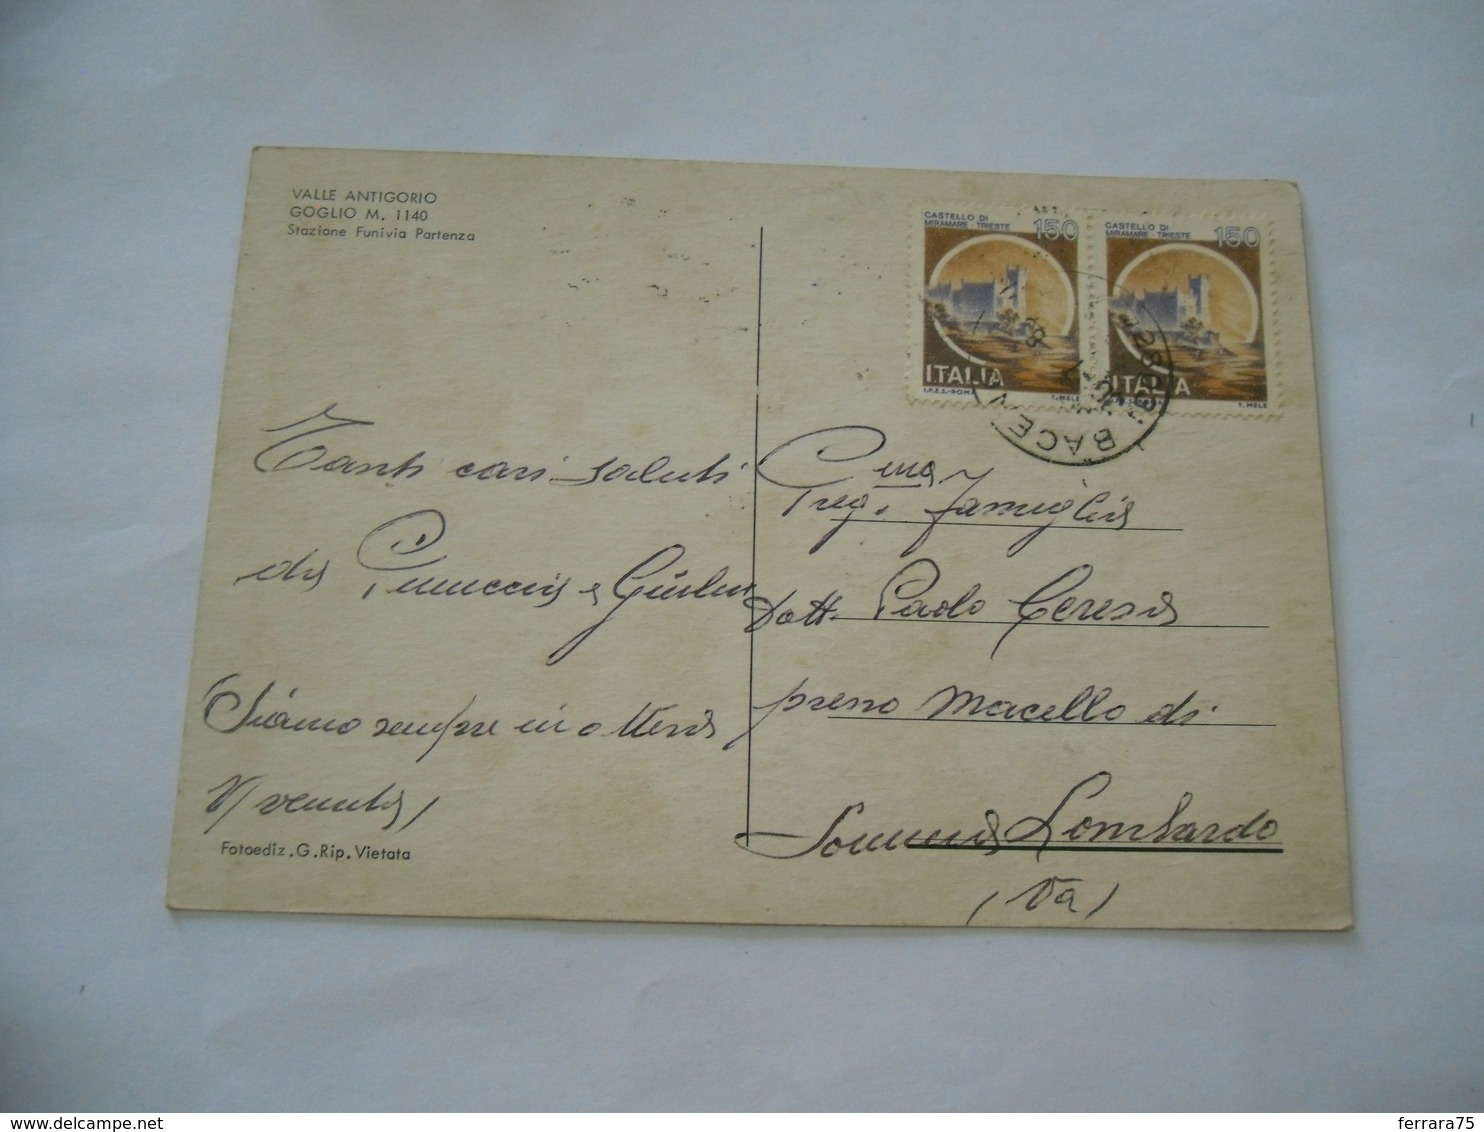 VALLE ANTIGORIO
GOGLIO M. 1140
Stazione Funivia Partenza
CASTELLO DI
MIRAMARE - TRIESTE
150
ITALIA
I.P.Z.S.-ROMA
T. MELE
CASTELLO DI
MIRAMARE - TRIESTE
150
ITALIA
T. MELE
BACENO
Tanti cari saluti
da Pinuccia e
Siamo sempre in attesa
Fotoediz.G.Rip.Vietata
Preg.ma famiglia
Dott. Paolo Ceresa
presso Macello di
Somma Lombardo
(Va)
ferrara75